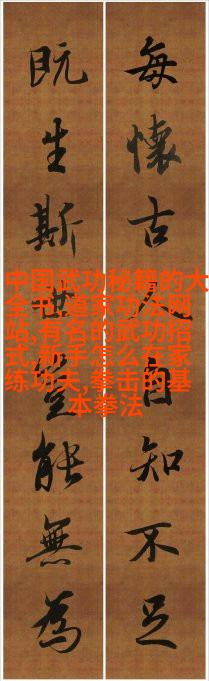 每懷古人自知不足
既生斯世豈能無為
中国武功秘籍的大
全书,道家功法网
站,有名的武功招
式,新手怎么在家
练功夫,拳击的基
本拳法